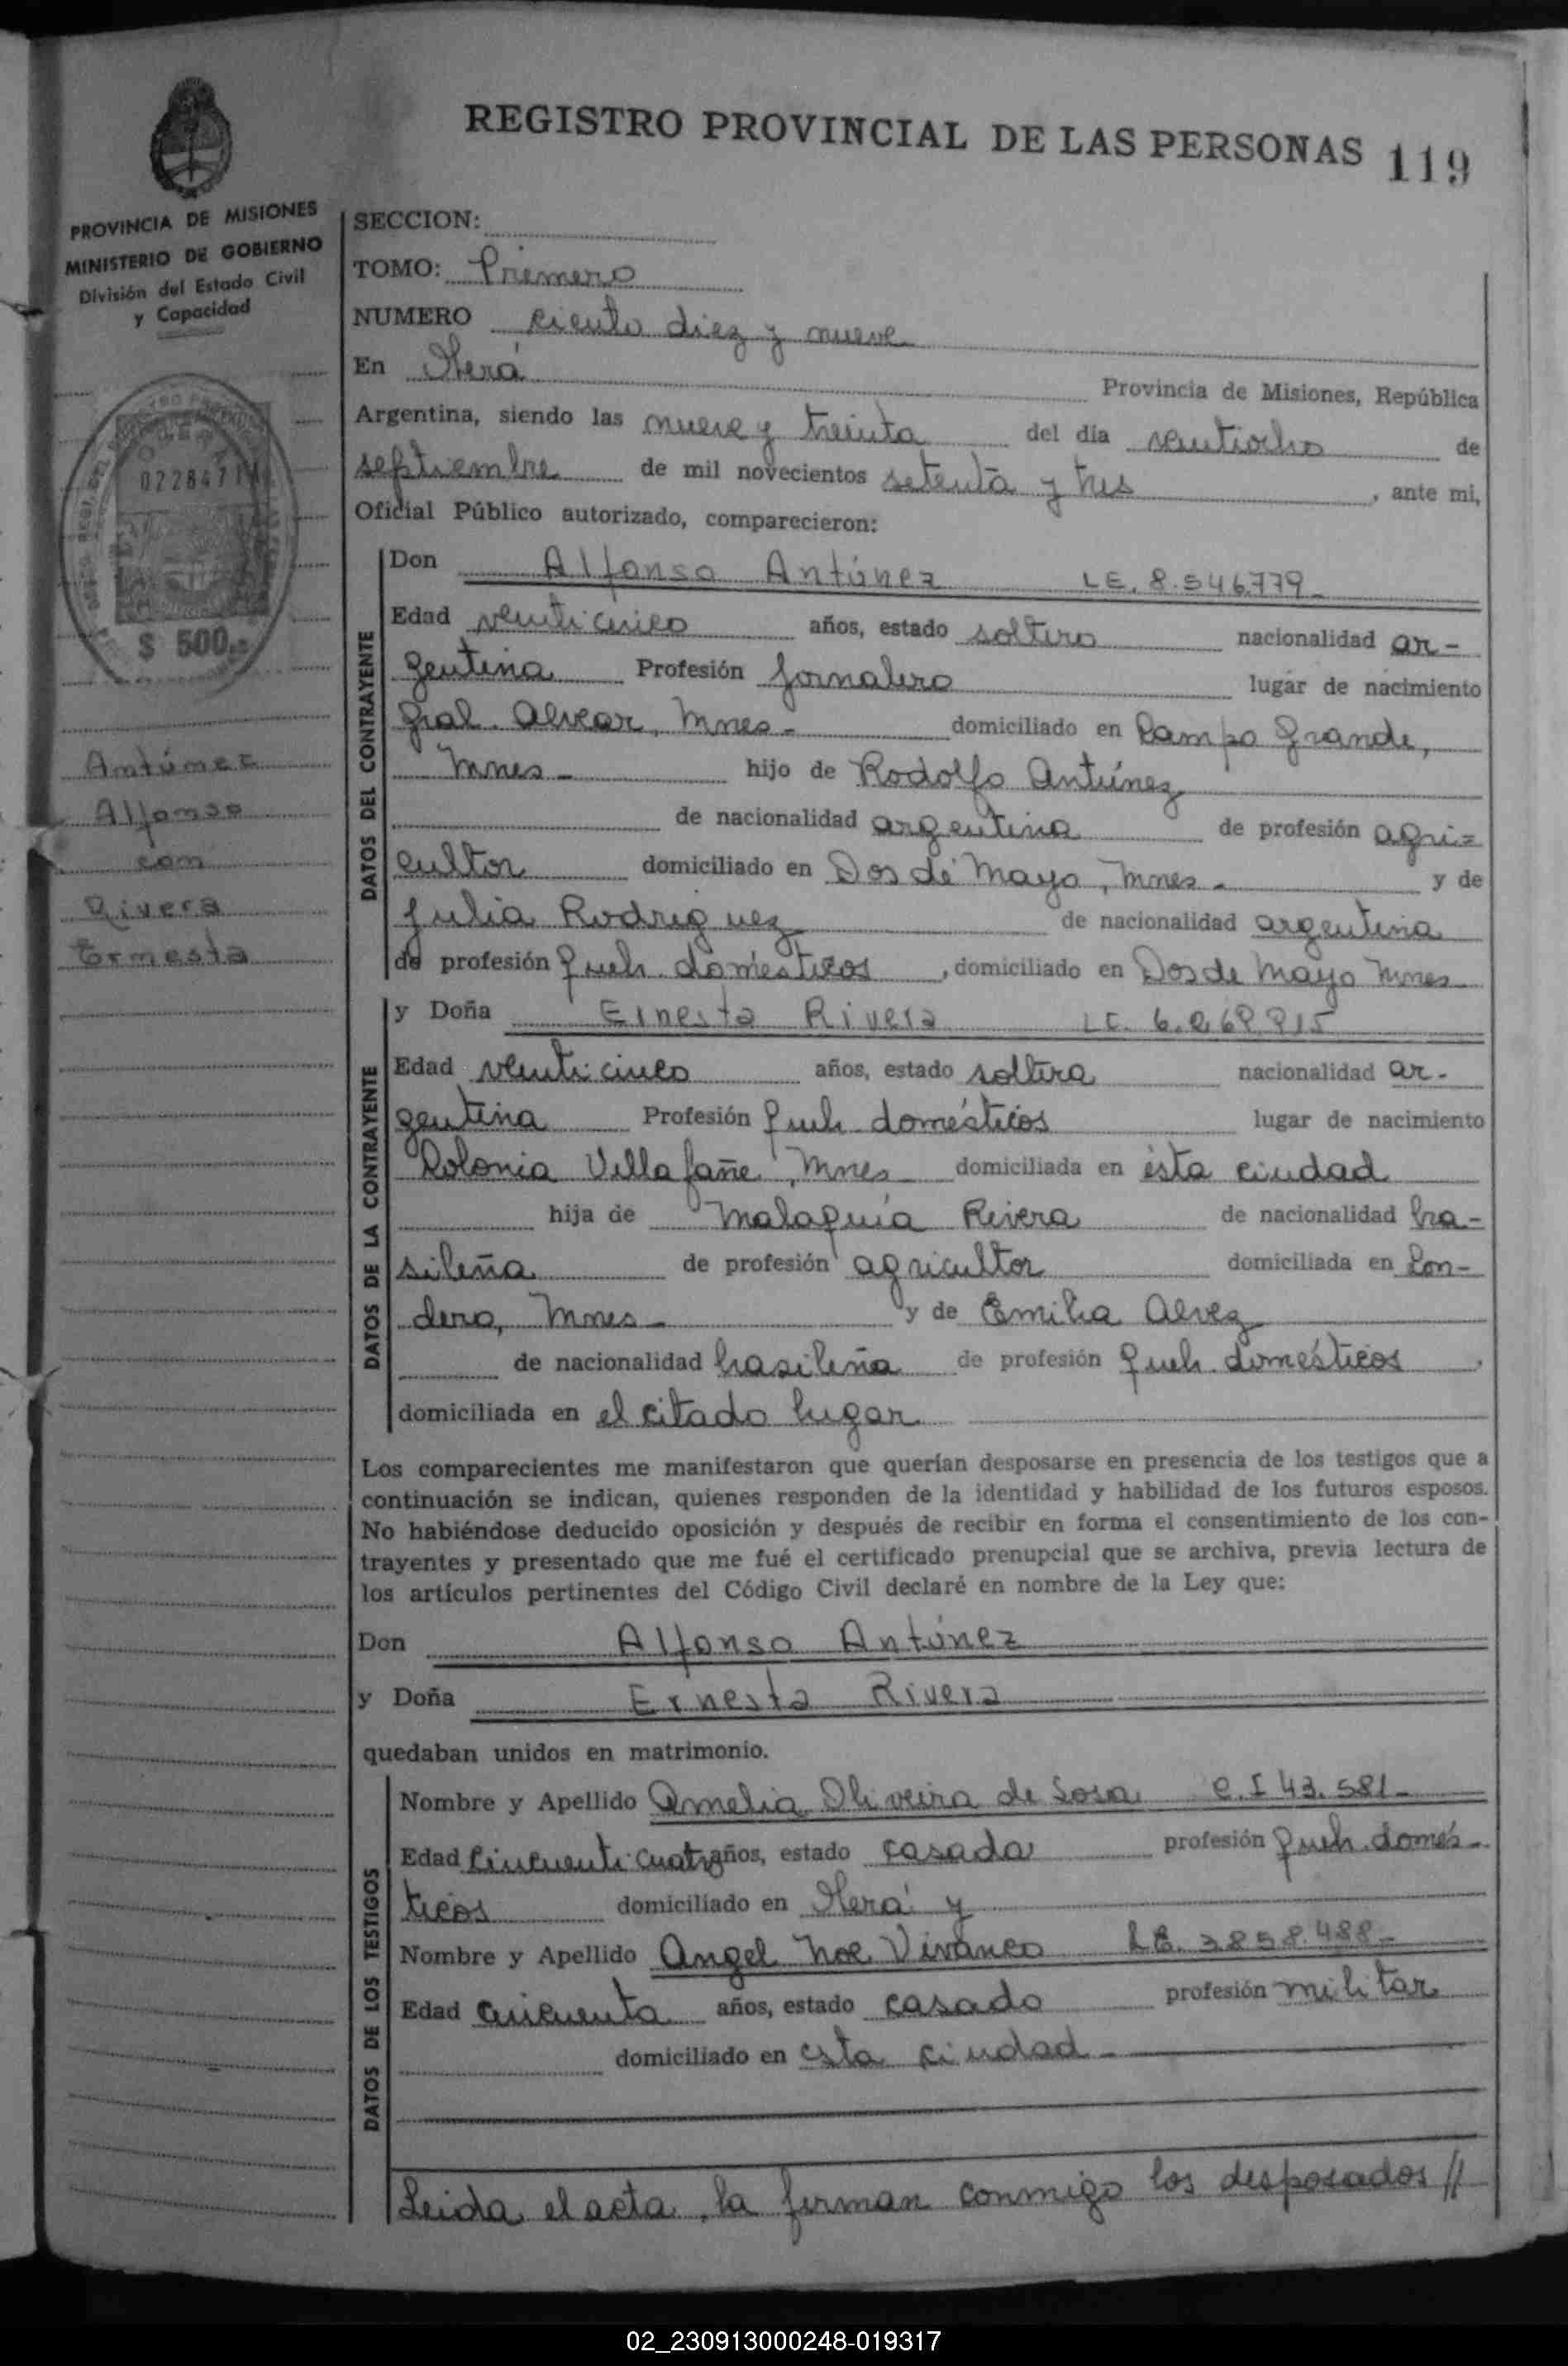 REGISTRO PROVINCIAL DE LAS PERSONAS 119
PROVINCIA DE MISIONES
MINISTERIO DE GOBIERNO
División del Estado Civil
y Capacidad
$ 500.-
Antúnez
Alfonso
con
Rivera
Ernesta
SECCION:
TOMO: Primero
NUMERO ciento diez y nueve
En Oberá Provincia de Misiones, República
Argentina, siendo las nueve y treinta del día ventiocho de
septiembre de mil novecientos setenta y tres , ante mi,
Oficial Público autorizado, comparecieron:
DATOS DEL CONTRAYENTE
Don Alfonso Antúnez LE. 8.546.779-
Edad venticinco años, estado soltero nacionalidad ar-
gentina Profesión jornalero lugar de nacimiento
Gral. Alvear, Mnes- domiciliado en Campo Grande,
Mnes- hijo de Rodolfo Antúnez
de nacionalidad argentina de profesión agri-
cultor domiciliado en Dos de Mayo, Mnes- y de
Julia Rodriguez de nacionalidad argentina
de profesión queh. domésticos , domiciliado en Dos de Mayo Mnes
DATOS DE LA CONTRAYENTE
y Doña Ernesta Rivera LC.
Edad venticinco años, estado soltera nacionalidad ar-
gentina Profesión queh. domésticos lugar de nacimiento
Colonia Villafañe, Mnes domiciliada en ésta ciudad
hija de Malaquía Rivera de nacionalidad bra-
sileña de profesión agricultor domiciliada en Lon-
dero, Mnes- y de Emilia Alvez
de nacionalidad brasileña de profesión queh. domésticos ,
domiciliada en el citado lugar
Los comparecientes me manifestaron que querían desposarse en presencia de los testigos que a
continuación se indican, quienes responden de la identidad y habilidad de los futuros esposos.
No habiéndose deducido oposición y después de recibir en forma el consentimiento de los con-
trayentes y presentado que me fué el certificado prenupcial que se archiva, previa lectura de
los artículos pertinentes del Código Civil declaré en nombre de la Ley que:
Don Alfonso Antúnez
y Doña Ernesta Rivera
quedaban unidos en matrimonio.
DATOS DE LOS TESTIGOS
Nombre y Apellido Amelia Oliveira de Sosa C.I 43.581-
Edad cincuenticuatro años, estado casada profesión queh. domés-
ticos domiciliado en Oberá y
Nombre y Apellido Angel Noe Vivanco LE. 3858.488-
Edad cincuenta años, estado casado profesión militar
domiciliado en esta ciudad-
Leida el acta, la firman conmigo los desposados //
02_230913000248-019317